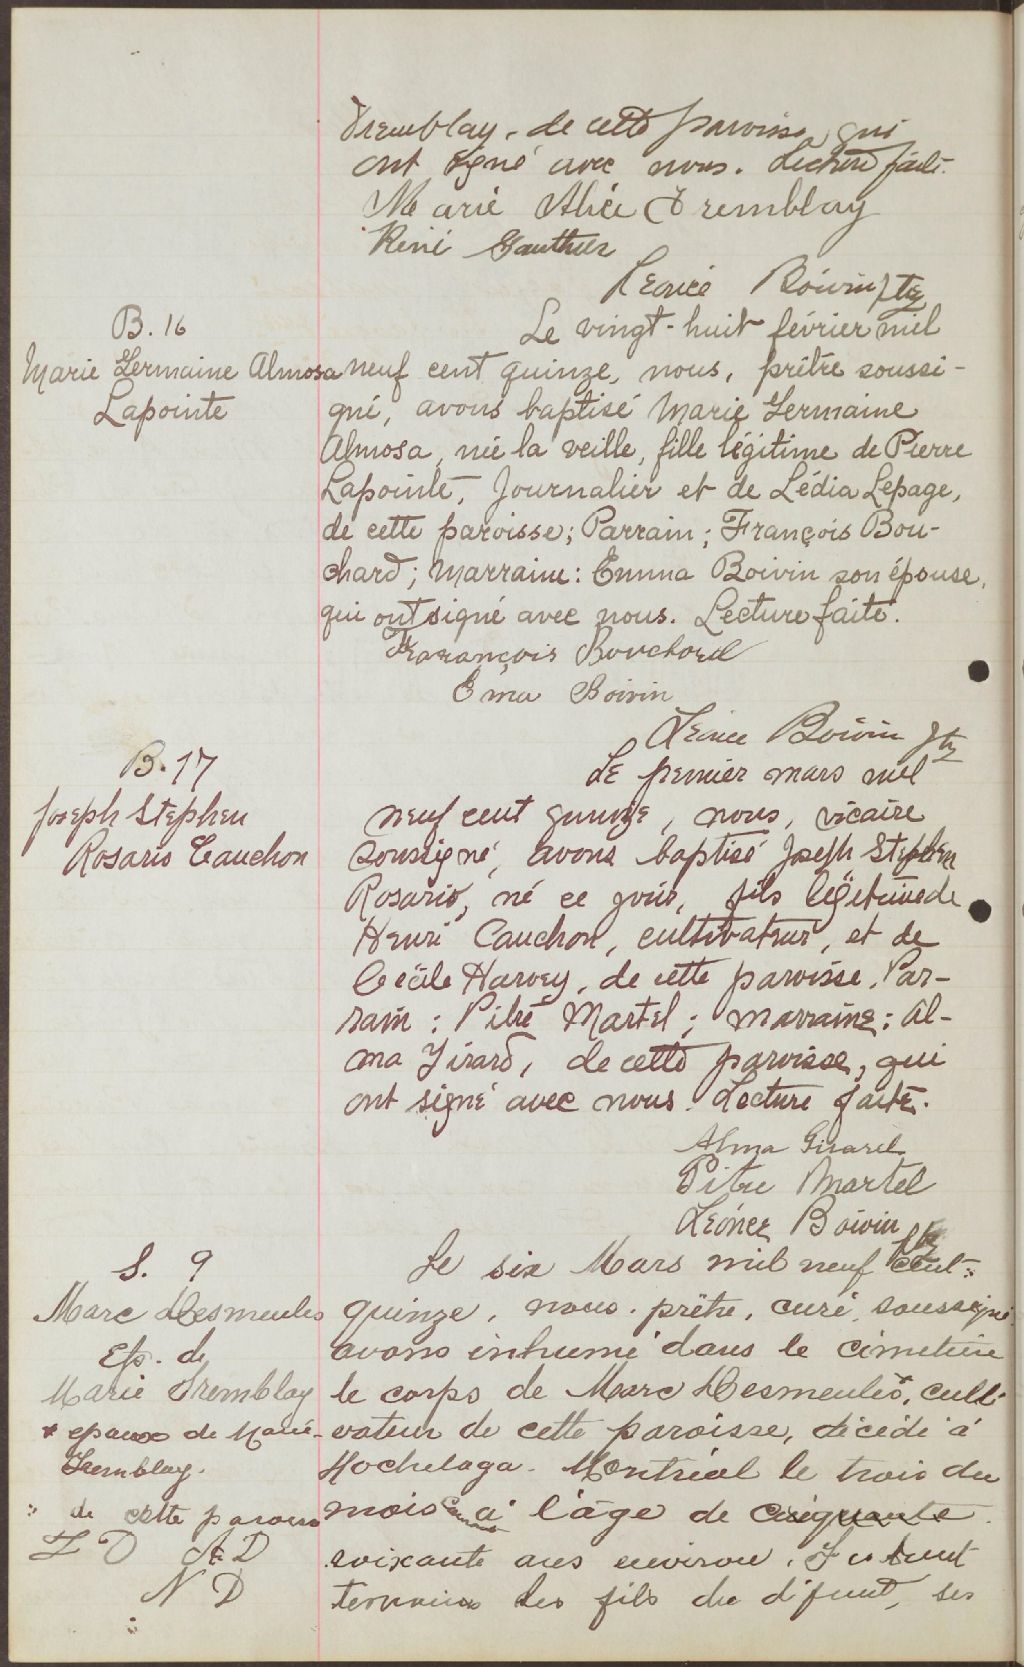 Tremblay, de cette paroisse, qui
ont signé avec nous. Lecture faite.
Marie Alice Tremblay
René Gauthier
Léonce Boivin ptre
B. 16
Marie Germaine Almosa
Lapointe
Le vingt-huit février mil
neuf cent quinze, nous, prêtre soussi-
gné, avons baptisé Marie Germaine
Almosa, née la veille, fille légitime de Pierre
Lapointe, Journalier et de Lédia Lepage,
de cette paroisse; Parrain; François Bou-
chard; Marraine: Emma Boivin son épouse,
qui ont signé avec nous. Lecture faite.
Frarançois Bouchard
Ema Boivin
Léonce Boivin ptre
B. 17
Joseph Stephen
Rosario Cauchon
Le premier mars mil
neuf cent quinze, nous, vicaire
soussigné, avons baptisé Joseph Stephen
Rosario, né ce jour, fils légitime de
Henri Cauchon, cultivateur, et de
Cécile Harvey, de cette paroisse. Par-
rain: Pitre Martel; marraine: Al-
ma Girard, de cette paroisse, qui
ont signé avec nous. Lecture faite.
Alma Girard
Pitre Martel
Léonce Boivin ptre
S. 9
Marc Desmeules
Ep. de
Marie Tremblay
* epoux de Marie
Tremblay.
:: de cette paroisse
N D
Le six Mars mil neuf cent
quinze, nous, prêtre, curé, soussigné
avons inhumé dans le cimetière
le corps de Marc Desmeules*, culti
vateur de cette paroisse, décédé à
Hochelaga-Montréal le trois du
mois courant à l'âge de cinquante
soixante ans environ. Furent
temoins les fils du défunt, ses